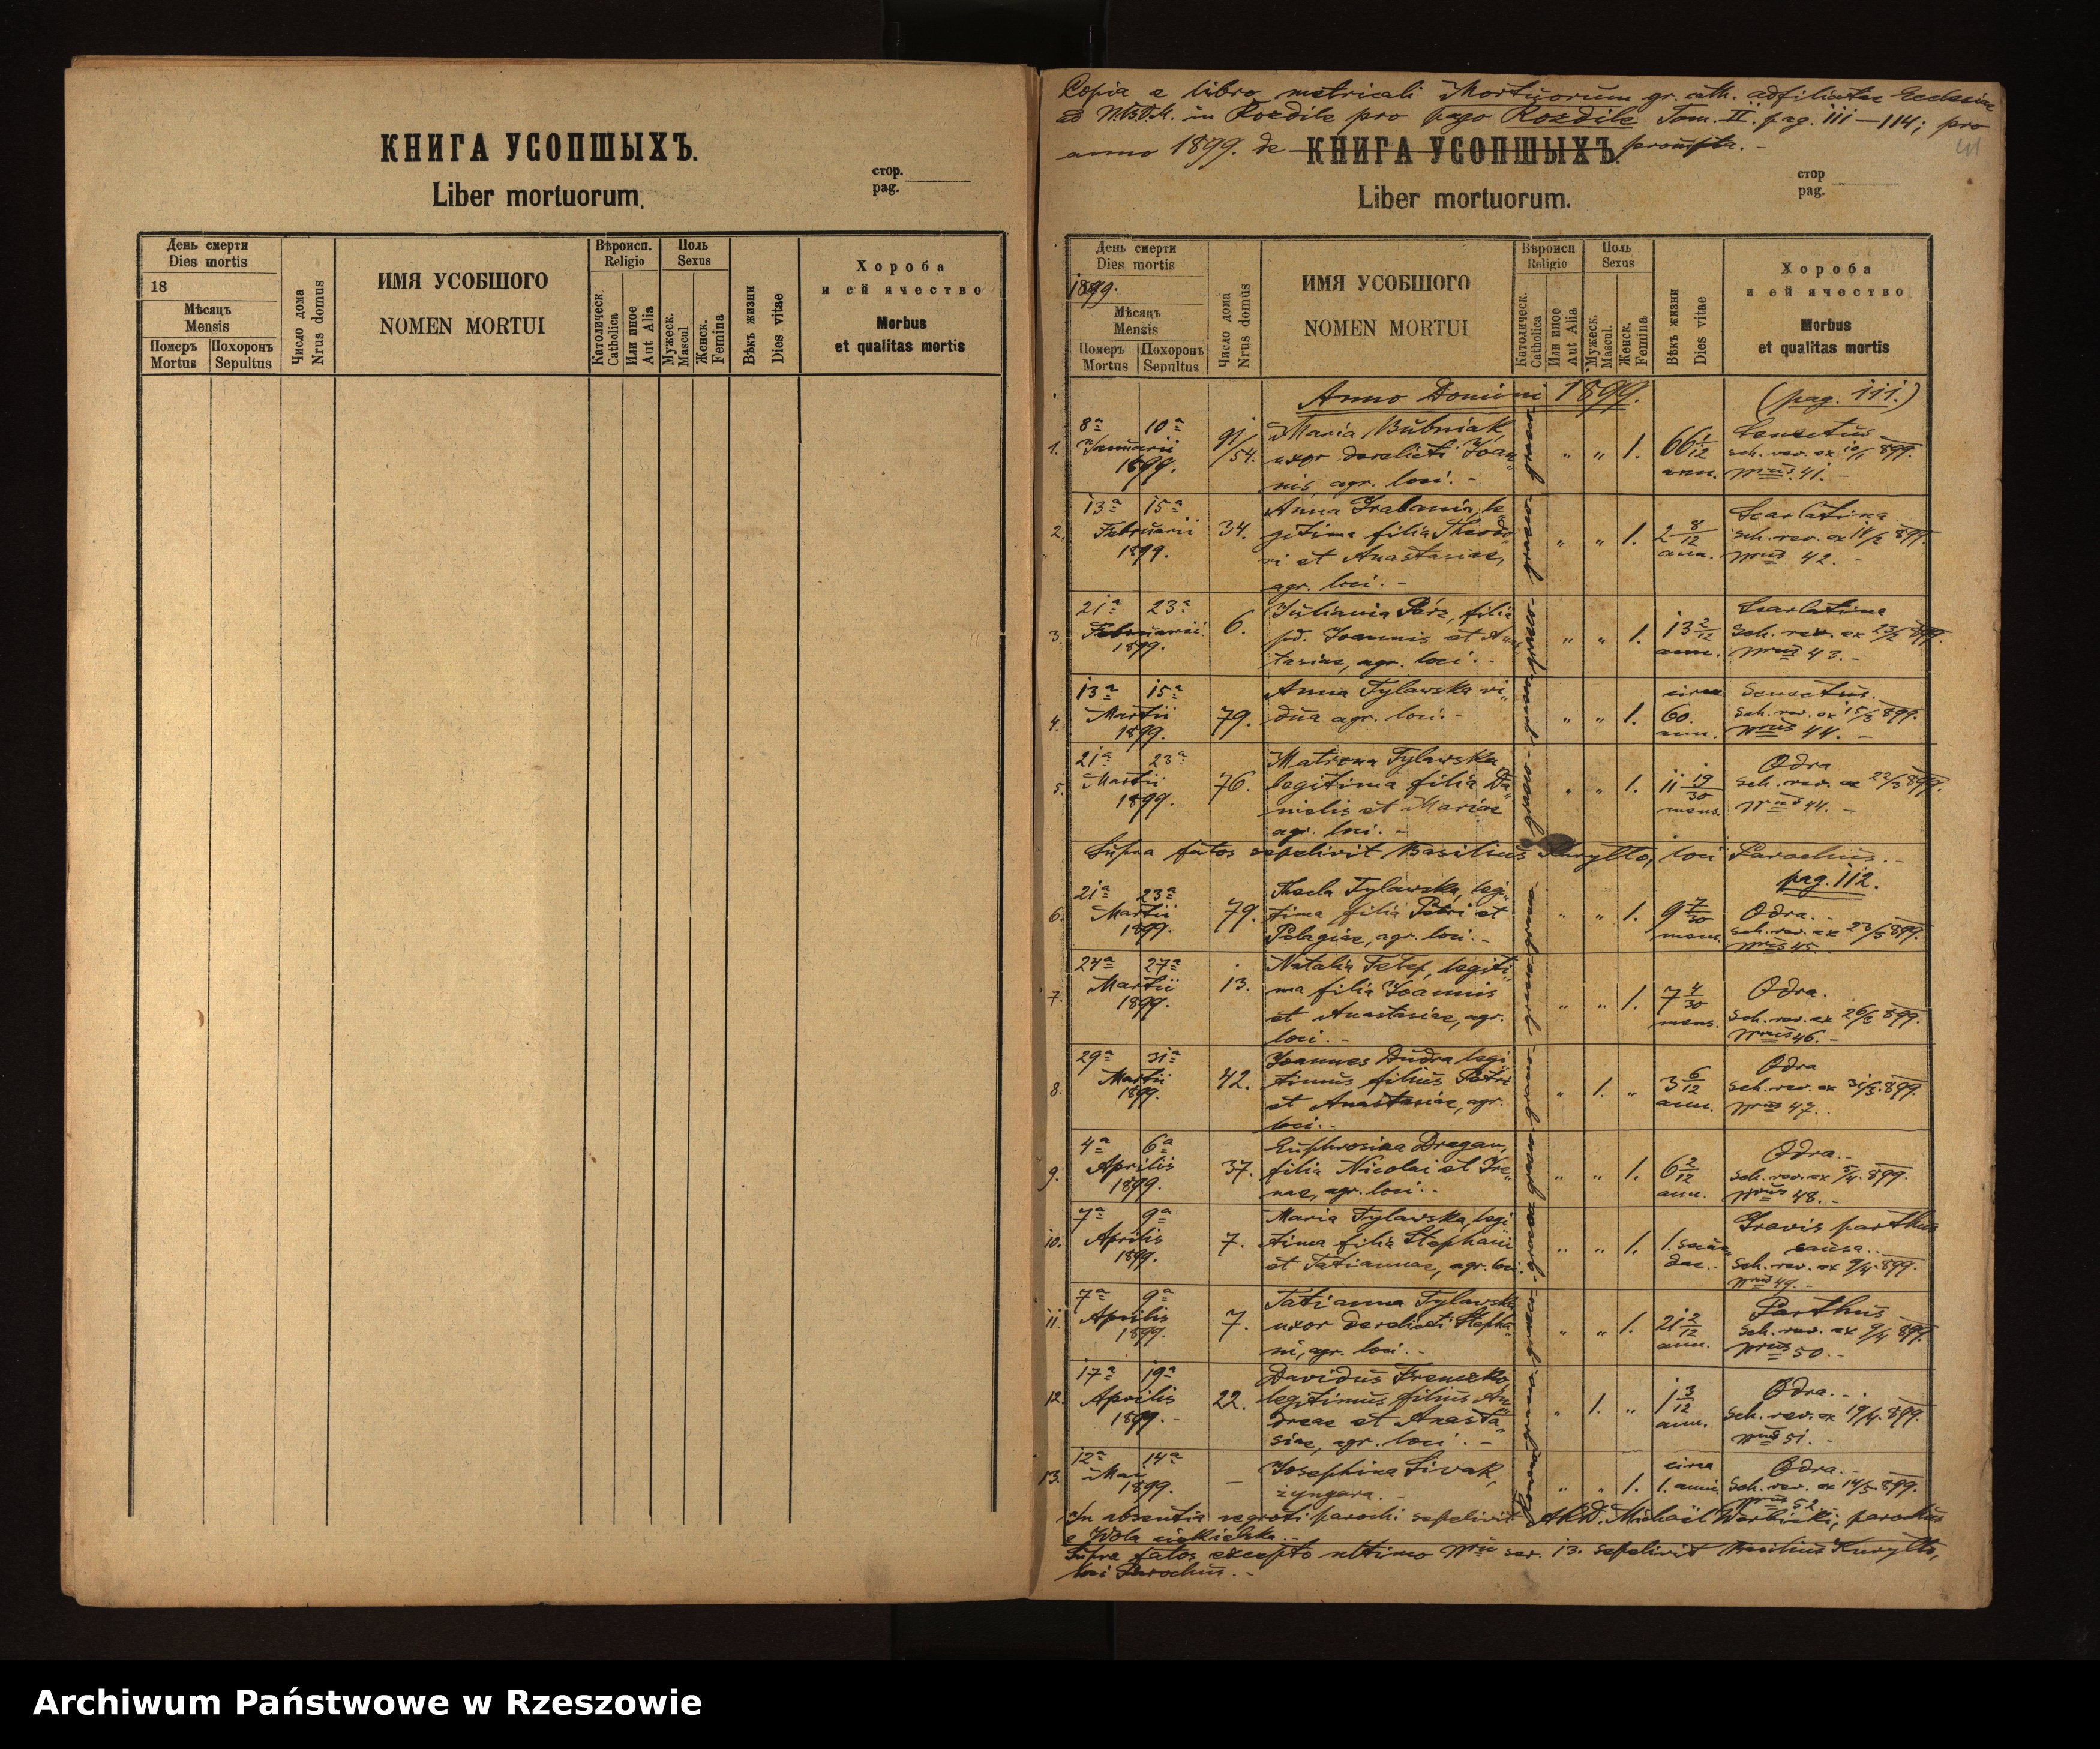 КНИГА УСОПШЫХЪ.
Liber mortuorum.
стор.
pag.
День смерти
Dies mortis
18
Мѣсяцъ
Mensis
Померъ
Mortus
Похоронъ
Sepultus
Число дома
Nrus domus
ИМЯ УСОБШОГО
NOMEN MORTUI
Вѣроисп.
Religio
Католическ
Catholica
Или иное
Aut Alia
Поль
Sexus
Мужеск.
Mascul
Женск.
Femina
Вѣкъ жизни
Dies vitae
Хороба
и ей ячество
Morbus
et qualitas mortis
Copia e libro metricali Mortuorum gr. cath. adfiliatae Ecclesiae
ad N.B.V.M. in Rozdile pro pago Rozdile Tom. II. pag. 111—114; pro
anno 1899. de prompta. -
КНИГА УСОПШЫХЪ.
Liber mortuorum.
стор
pag.
День смерти
Dies mortis
1899.
Мѣсяцъ
Mensis
Померъ
Mortus
Похоронъ
Sepultus
Число дома
Nrus domus
ИМЯ УСОБШОГО
NOMEN MORTUI
Вѣроисп
Religio
Католическ.
Catholica
Или иное
Aut Alia
Поль
Sexus
Мужеск.
Mascul.
Женск.
Femina
Вѣкъ жизни
Dies vitae
Хороба
и ей ячество
Morbus
et qualitas mortis
Anno Domini 1899. (pag. 111.)
1. 8ª 10ª Januarii 1899. 91/54. Maria Bubniak,
uxor derelicti Joan„
nis, agr. loci. -
„ „ 1. 66 1/12 ann.
Senectus
sch. rev. ex 10/1 899.
Nrus 41. -
2. 13ª 15ª Februarii 1899. 34. Anna Grabania, le„
gitima filia Theodo„
ri et Anastasiae,
agr. loci. -
„ „ 1. 2 8/12 ann.
Scarlatina
sch. rev. ex 14/2 899.
Nrus 42. -
3. 21ª 23ª Februarii 1899. 6. Juliania Perz, filia
pd. Joannis et Anas„
tasiae, agr. loci. -
„ „ 1. 13 2/12 ann.
Scarlatina
sch. rev. ex 23/2 899.
Nrus 43. -
4. 13ª 15ª Martii 1899. 79. Anna Tylawska vi„
dua agr. loci. -
„ „ 1. circa 60. ann.
Senectus.
sch. rev. ex 15/3 899.
Nrus 44. -
5. 21ª 23ª Martii 1899. 76. Matrona Tylawska,
legitima filia Da„
nielis et Mariae
agr. loci. -
„ „ 1. 11 19/30 mens.
Odra
sch. rev. ex 22/3 899.
Nrus 44. -
Supra fatos sepelivit Basilius Kuryłło, loci Parochus. -
pag. 112.
6. 21ª 23ª Martii 1899. 79. Thecla Tylawska, legi„
tima filia Petri et
Pelagiae, agr. loci. -
„ „ 1. 9 7/30 mens.
Odra. -
sch. rev. ex 23/3 899.
Nrus 45.
7. 24ª 27ª Martii 1899. 13. Natalia Fetef, legiti„
ma filia Joannis
et Anastasiae, agr.
loci. -
„ „ 1. 7 4/30 mens.
Odra.
sch. rev. ex 26/3 899.
Nrus 46. -
8. 29ª 31ª Martii 1899. 42. Joannes Dudra legi
timus filius Petri
et Anastasiae, agr.
loci. -
„ 1. „ 3 6/12 ann.
Odra
sch. rev. ex 31/3. 899.
Nrus 47.
9. 4ª 6ª Aprilis 1899. 37. Euphrosina Dragan,
filia Nicolai et Ire„
nae, agr. loci. -
„ „ 1. 6 2/12 ann.
Odra. -
sch. rev. ex 5/4. 899.
Nrus 48. -
10. 7ª 9ª Aprilis 1899. 7. Maria Tylawska, legi
tima filia Stephani
et Tatiannae, agr. loci.
„ „ 1. 1. secun„
dae..
Gravis parthus
causa..
sch. rev. ex 9/4. 899.
Nrus 49. -
11. 7ª 9ª Aprilis 1899. 7. Tatianna Tylawska
uxor derelicti Stepha„
ni, agr. loci. -
„ „ 1. 21 2/12 ann.
Parthus
sch. rev. ex 9/4 899.
Nrus 50. -
12. 17ª 19ª Aprilis 1899. - 22. Davidus Frenczko
legitimus filius An„
dreae et Anasta„
siae, agr. loci. -
„ 1. „ 1 3/12 ann.
Odra. -
sch. rev. ex 19/4. 899.
Nrus 51. -
13. 12ª 14ª Mai 1899. — Josephina Siwak,
zyngara. -
„ „ 1. circa 1. anni.
Odra. -
sch. rev. ex 14/5. 899.
Nrus 52
In absentia aegroti parochi sepelivit ARD. Michaël Werbicki, parochus
e Wola cieklińska. -
Supra fatos excepto ultimo Nru ser. 13. sepelivit Basilius Kuryłło,
loci Parochus. -
Archiwum Państwowe w Rzeszowie